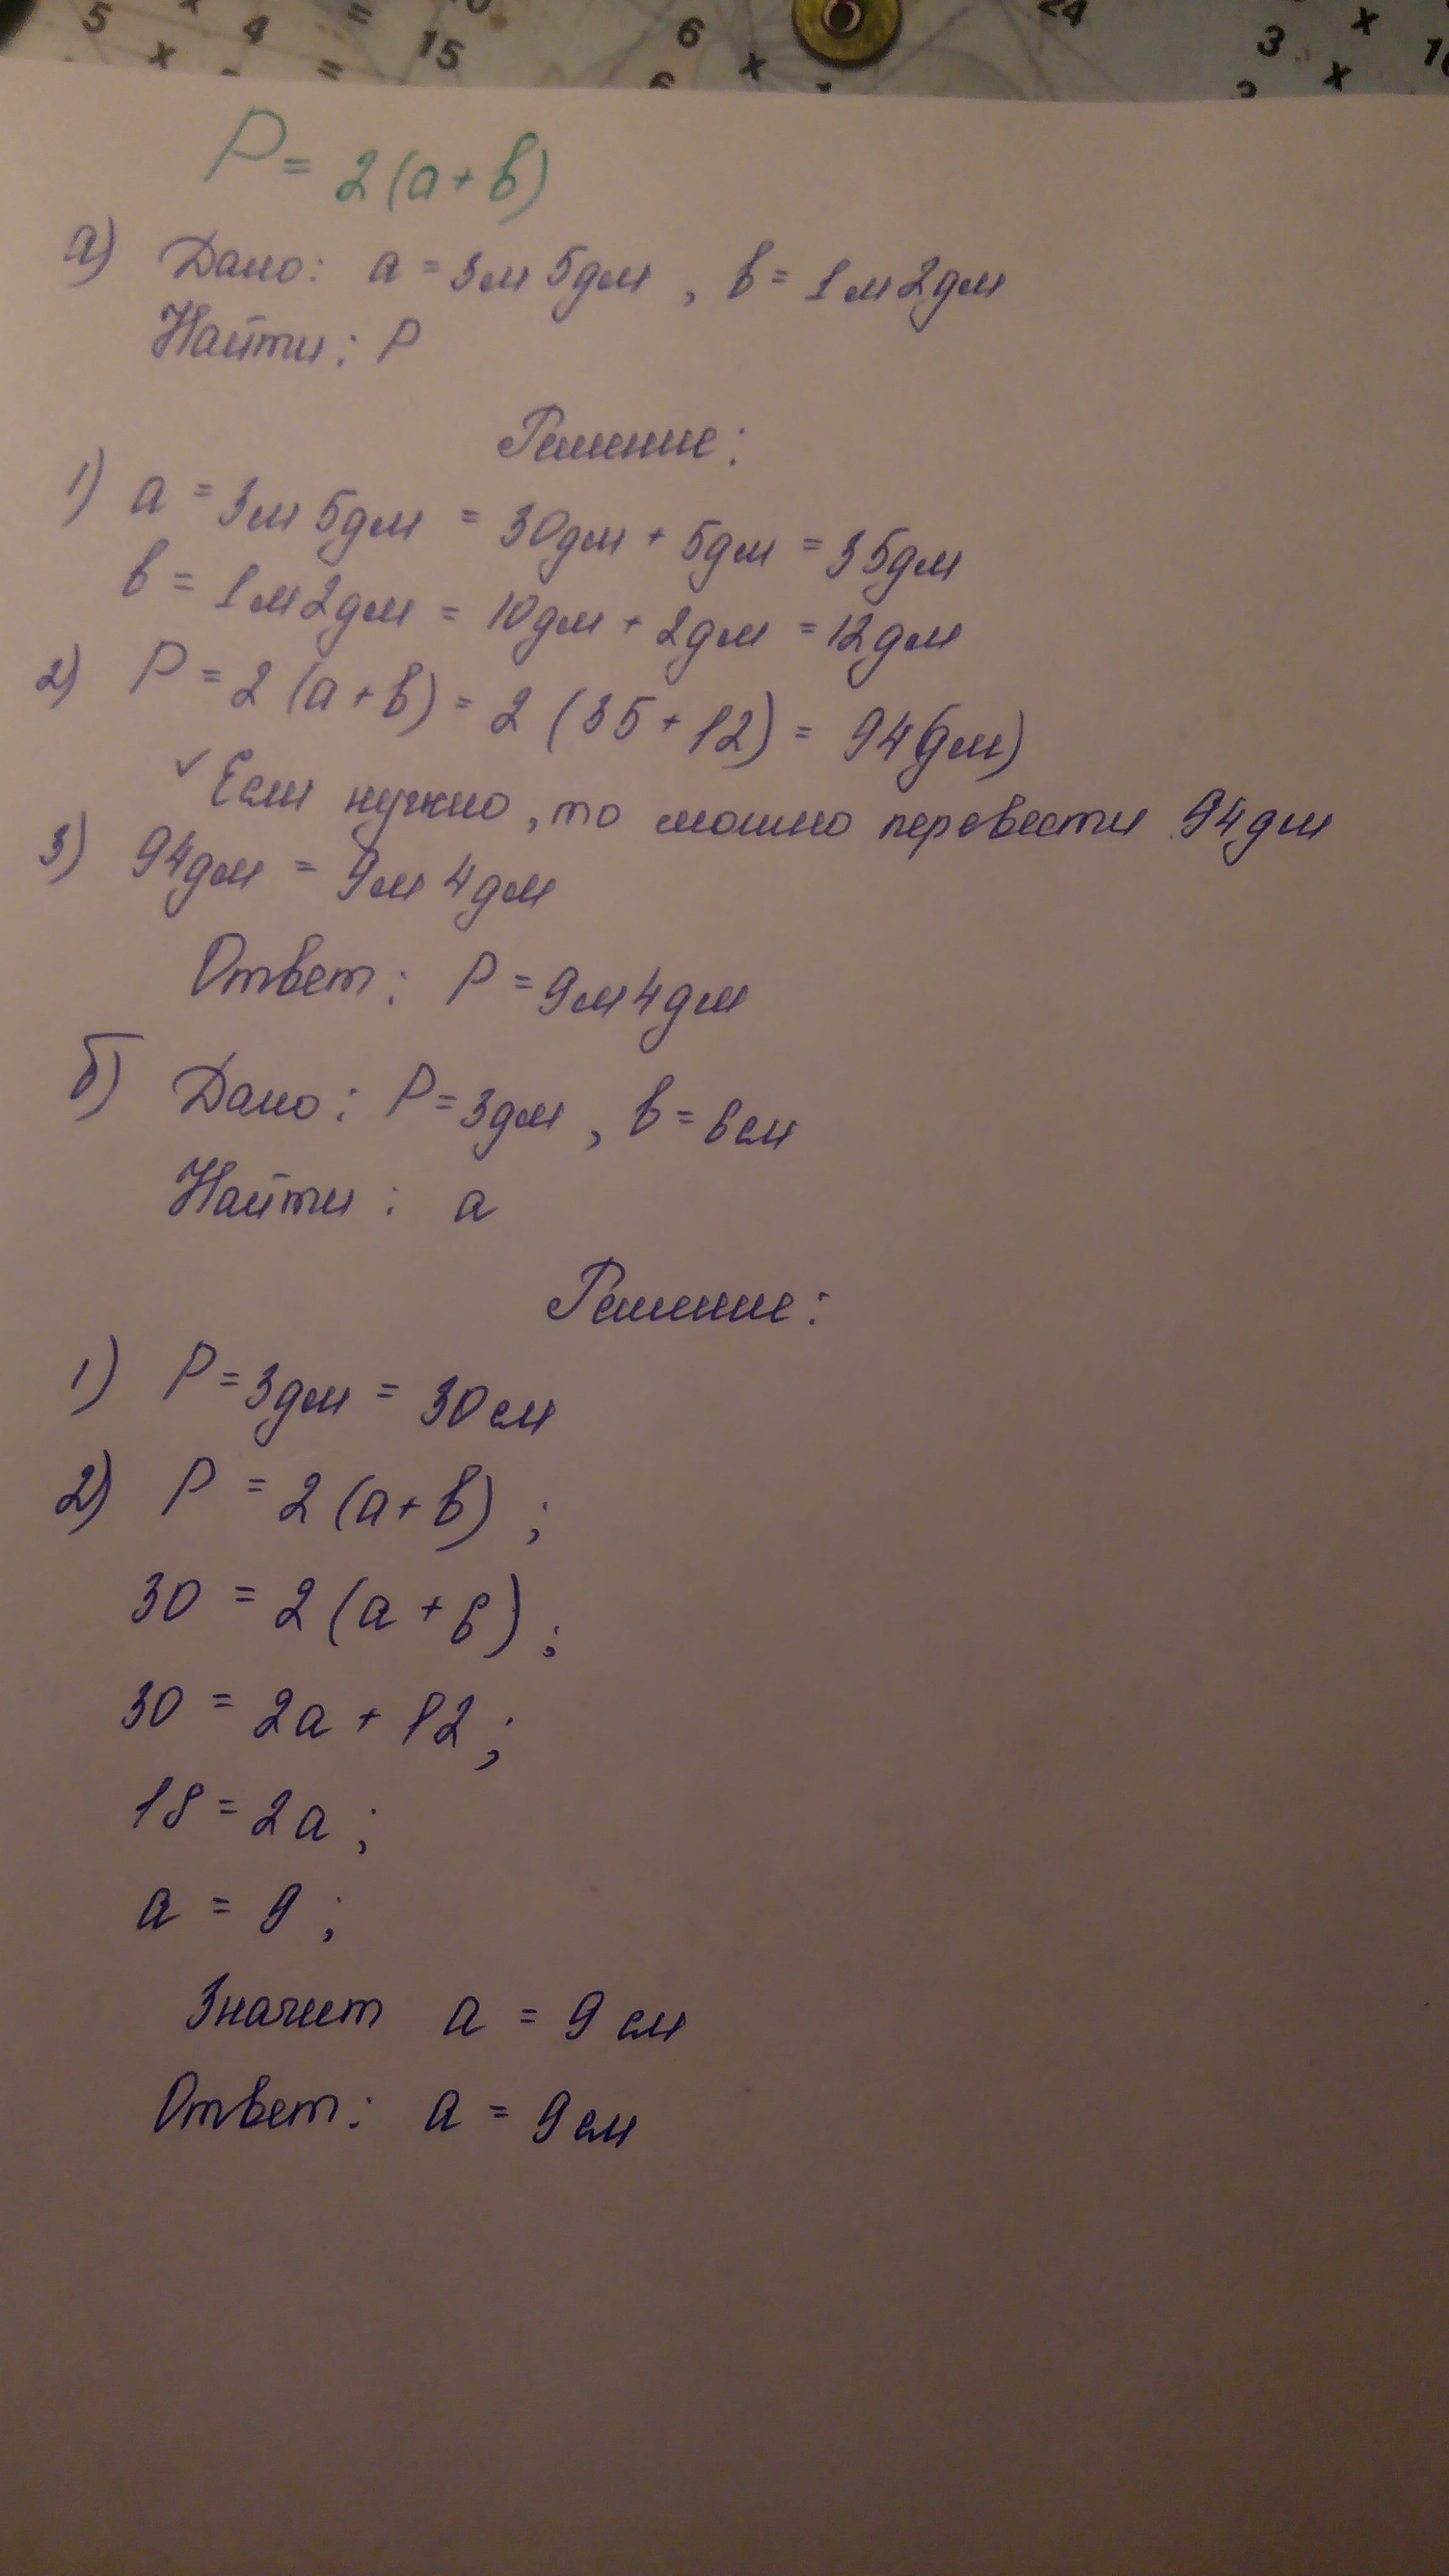 5 x 4 = 15 6 x 24 3 x
P = 2(a + b)
а) Дано: a = 3м 5дм, b = 1м 2дм
Найти: P
Решение:
1) a = 3м 5дм = 30дм + 5дм = 35дм
b = 1м 2дм = 10дм + 2дм = 12дм
2) P = 2 (a + b) = 2 (35 + 12) = 94(дм)
✓ Если нужно, то можно перевести 94дм
3) 94дм = 9м 4дм
Ответ: P = 9м 4дм
б) Дано: P = 3дм, b = 6см
Найти: a
Решение:
1) P = 3дм = 30см
2) P = 2 (a + b);
30 = 2 (a + 6);
30 = 2a + 12;
18 = 2a;
a = 9;
Значит a = 9 см
Ответ: a = 9см